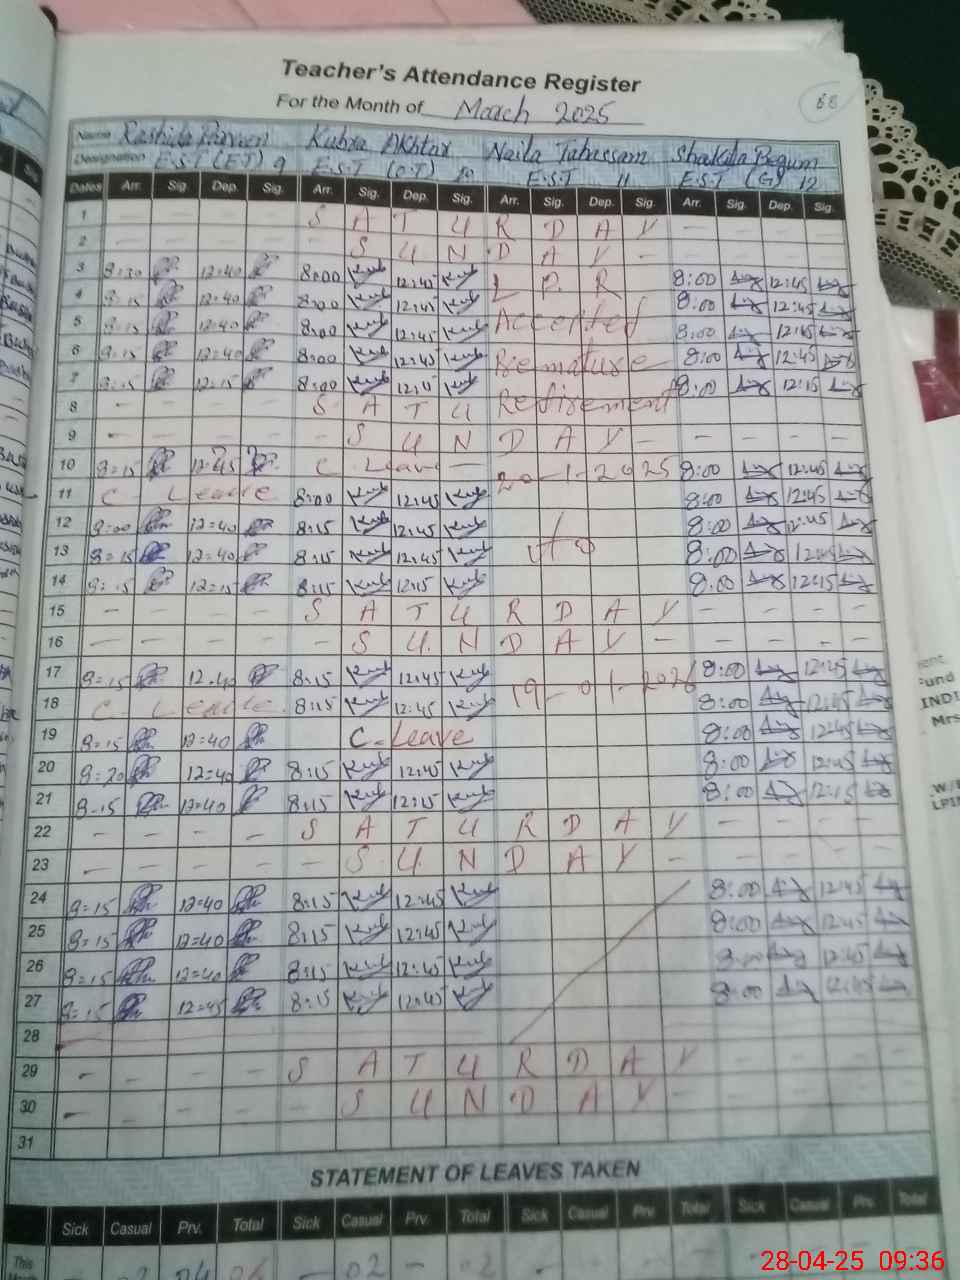 Teacher's Attendance Register
For the Month of March 2025
Name Rashida Parveen Kubra Akhtar Naila Tabassam Shakila Begum
Designation E.S.T (E.T) 9 E.S.T (O.T) 10 E.S.T 11 E.S.T (G) 12
Dates Arr. Sig. Dep. Sig. Arr. Sig. Dep. Sig. Arr. Sig. Dep. Sig. Arr. Sig. Dep. Sig.
1 - - - - S A T U R D A Y - - - -
2 - - - - - S U N D A Y - - - - -
3 8=30 12=40 8:00 12:45 L P R 8:00 12:45
4 8=15 12=40 8:00 12:45 8:00 12:45
5 8=15 12=40 8:00 12:45 Accepted 8:00 12:45
6 8=15 12=40 8:00 12:45 Premature 8:00 12:45
7 8=15 12=15 8:00 12:15 8:00 12:15
8 - - - - S A T U Retirement
9 - - - - - S U N D A Y - - - - -
10 8=15 12=45 C. Leave - 20-1-2025 8:00 12:45
11 C - Leave 8:00 12:45 8:00 12:45
12 8=00 12=40 8:15 12:45 8:00 12:45
13 8=15 12=40 8:15 12:45 to 8:00 12:45
14 8=15 12=15 8:15 12:15 8:00 12:15
15 - - - - S A T U R D A Y - - - -
16 - - - - - S U N D A Y - - - - -
17 8=15 12=40 8:15 12:45 8:00 12:45
18 C - Leave 8:15 12:45 19-01-2026 8:00 12:45
19 8=15 12=40 C-Leave 8:00 12:45
20 8=20 12=40 8:15 12:45 8:00 12:45
21 8-15 12=40 8:15 12:15 8:00 12:15
22 - - - - S A T U R D A Y - - - -
23 - - - - - S U N D A Y - - - - -
24 8=15 12=40 8:15 12:45 8:00 12:45
25 8=15 12=40 8:15 12:45 8:00 12:45
26 8=15 12=40 8:15 12:45 8:00 12:45
27 8=15 12=45 8:15 12:45 8:00 12:45
28
29 - - - - S A T U R D A Y - - - -
30 - - - - - S U N D A Y - - - - -
31
STATEMENT OF LEAVES TAKEN
Sick Casual Prv. Total Sick Casual Prv. Total Sick Casual Prv. Total Sick Casual Prv. Total
This 04 06 - 02 - 02
28-04-25 09:36